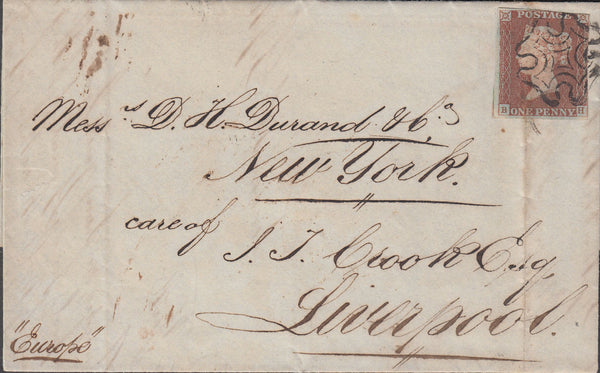 POSTAGE
B ONE PENNY H
Mess.rs D. H. Durand & Co
New York.
care of
J. J. Crook Esq,
Liverpool.
"Europe"